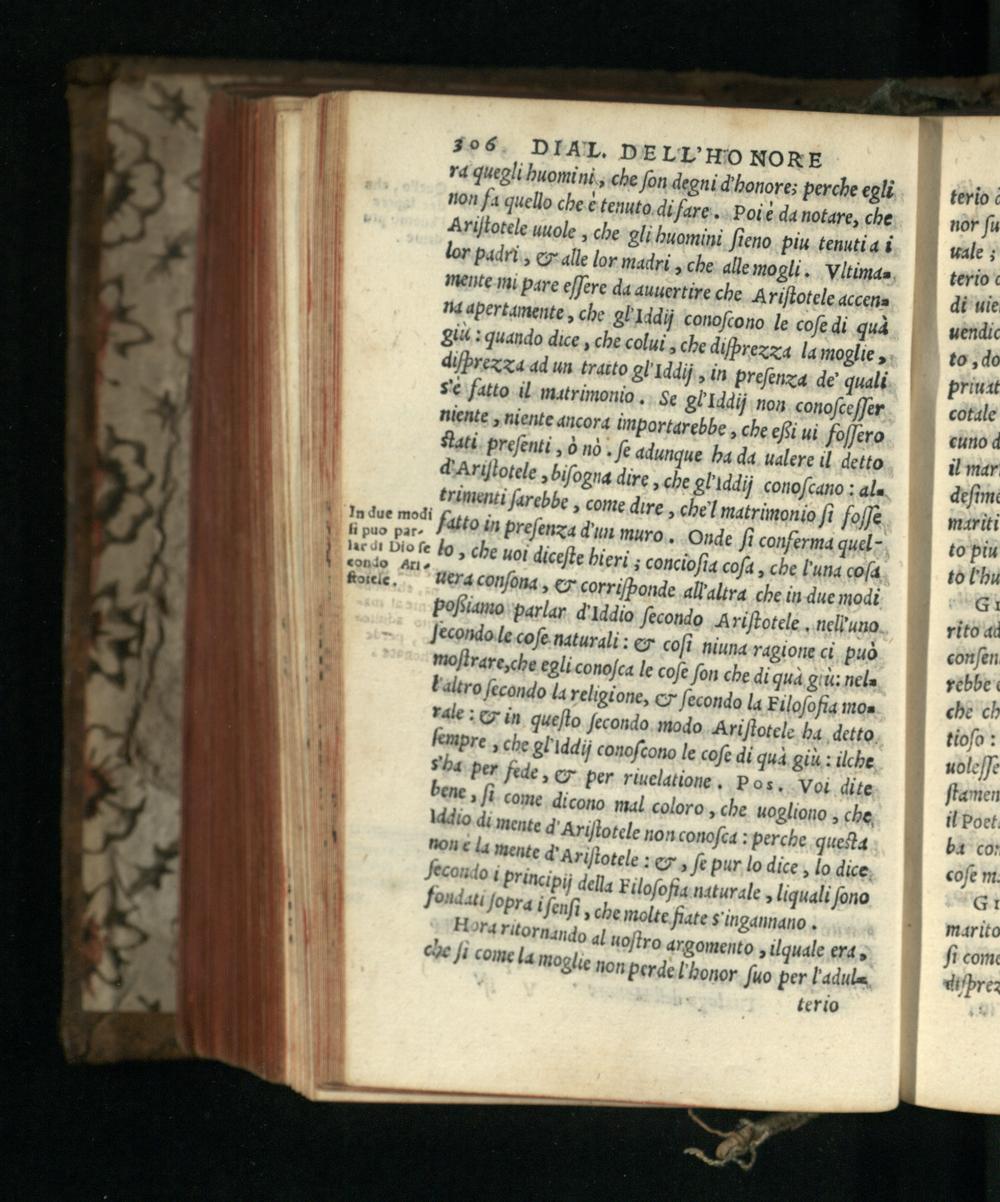 306 DIAL. DELL'HONORE
ra quegli huomini, che ſon degni d'honore; perche egli
non fa quello che è tenuto di fare. Poi è da notare, che
Ariſtotele uuole, che gli huomini ſieno piu tenuti a i
lor padri, & alle lor madri, che alle mogli. Vltima-
mente mi pare eſſere da auuertire che Ariſtotele accen-
na apertamente, che gl'Iddij conoſcono le coſe di quà
giù: quando dice, che colui, che diſprezza la moglie,
diſprezza ad un tratto gl'Iddij, in preſenza de' quali
s'è fatto il matrimonio. Se gl'Iddij non conoſceſſer
niente, niente ancora importarebbe, che eßi ui foſſero
ſtati preſenti, ò nò. ſe adunque ha da ualere il detto
d'Ariſtotele, biſogna dire, che gl'Iddij conoſcano: al-
trimenti ſarebbe, come dire, che'l matrimonio ſi foſſe
fatto in preſenza d'un muro. Onde ſi conferma quel-
lo, che uoi diceſte hieri; concioſia coſa, che l'una coſa
uera conſona, & corriſponde all'altra che in due modi
poßiamo parlar d'Iddio ſecondo Ariſtotele. nell'uno
ſecondo le coſe naturali: & coſi niuna ragione ci può
moſtrare, che egli conoſca le coſe ſon che di quà giù: nel-
l'altro ſecondo la religione, & ſecondo la Filoſofia mo-
rale: & in queſto ſecondo modo Ariſtotele ha detto
ſempre, che gl'Iddij conoſcono le coſe di quà giù: ilche
s'ha per fede, & per riuelatione. Pos. Voi dite
bene, ſi come dicono mal coloro, che uogliono, che
Iddio di mente d'Ariſtotele non conoſca: perche queſta
non è la mente d'Ariſtotele: &, ſe pur lo dice, lo dice
ſecondo i principij della Filoſofia naturale, liquali ſono
fondati ſopra i ſenſi, che molte fiate s'ingannano.
Hora ritornando al uoſtro argomento, ilquale era,
che ſi come la moglie non perde l'honor ſuo per l'adul-
terio
In due modi
ſi puo par-
lar di Dio ſe
condo Ari-
ſtotele.
terio
nor ſu
uale;
terio
di uie
uendic
to, do
priuat
cotale
cuno d
il mar
deſime
mariti
to piu
to l'hu
Gi
rito ad
conſen
rebbe
che ch
tioſo:
uoleſſe
ſtamen
il Poet
ba con
coſe m
Gi
marito
ſi come
diſprez